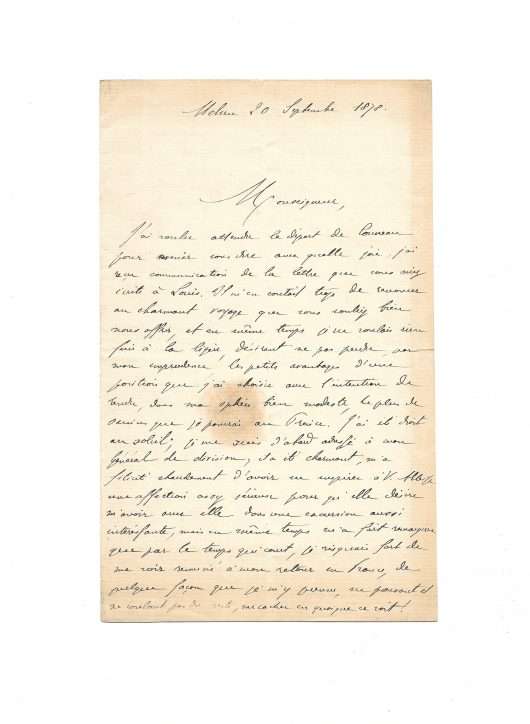 Melun 20 Septembre 1878.
Monseigneur,
J'ai voulu attendre le départ de
pour venir vous dire avec quelle joie j'ai
reçu communication de la lettre que vous avez
écrite à Louis. Il m'en coutait trop de renoncer
au charmant voyage que vous vouliez bien
nous offrir, et en même temps je ne voulais rien
faire à la légère, désirant ne pas perdre, par
mon imprudence, les petits avantages d'une
position que j'ai choisie avec l'intention de
rendre, dans ma sphère bien modeste, le plus de
services que je pourrais au Prince. J'ai été droit
au soleil; je me suis d'abord adressé à mon
Général de division, il a été charmant, m'a
félicité chaudement d'avoir su inspirer à V. Altesse
une affection assez sérieuse pour qu'elle désire
m'avoir avec elle dans une excursion aussi
intéressante, mais en même temps m'a fait remarquer
que par le temps qui court, je risquais fort de
me voir remercié à mon retour en France, de
quelque façon que je m'y prenne, ne pouvant et
ne voulant pas du reste, me cacher en quoique ce soit!